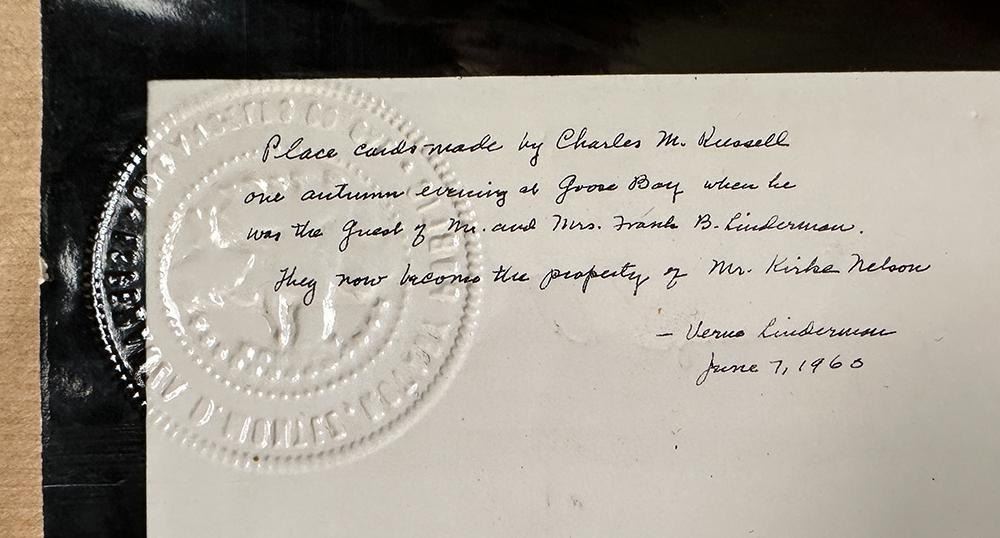 Place cards made by Charles M. Russell
one autumn evening at Goose Bay when he
was the guest of Mr. and Mrs. Frank B. Linderman.
They now become the property of Mr. Kirke Nelson
— Verne Linderman
June 7, 1960